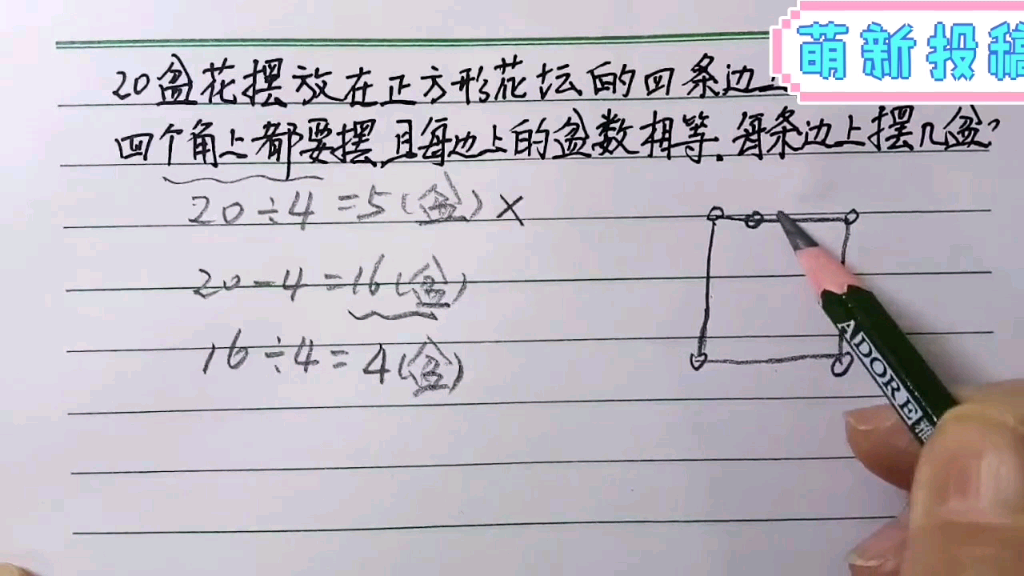 萌新投稿
20盆花摆放在正方形花坛的四条边上
四个角上都要摆,且每边上的盆数相等.每条边上摆几盆?
20÷4=5(盆)×
20-4=16(盆)
16÷4=4(盆)
ADORE